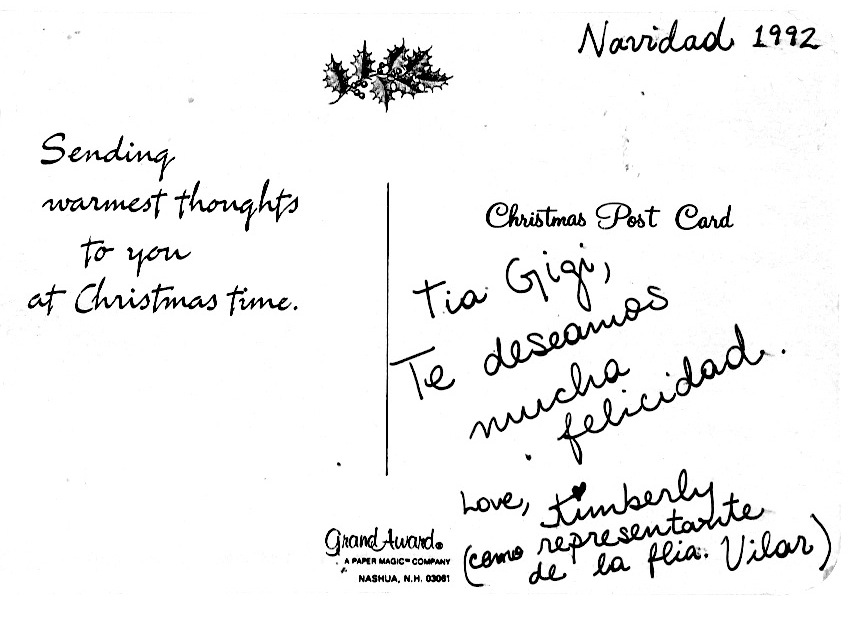 Navidad 1992
Sending
warmest thoughts
to you
at Christmas time.
Christmas Post Card
Tia Gigi,
Te deseamos
mucha
felicidad.
Love, Kimberly
(como representante
de la flia. Vilar)
Grand Award®
A PAPER MAGIC™ COMPANY
NASHUA, N.H. 03061